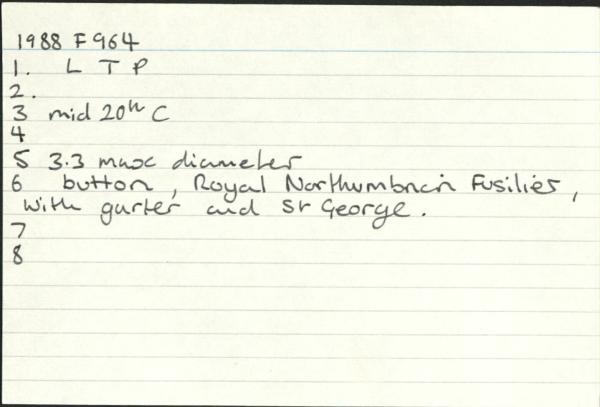 1988 F964
1. L T P
2.
3 mid 20th C
4
5 3.3 max diameter
6 button, Royal Northumbrian Fusilies,
with garter and St George.
7
8